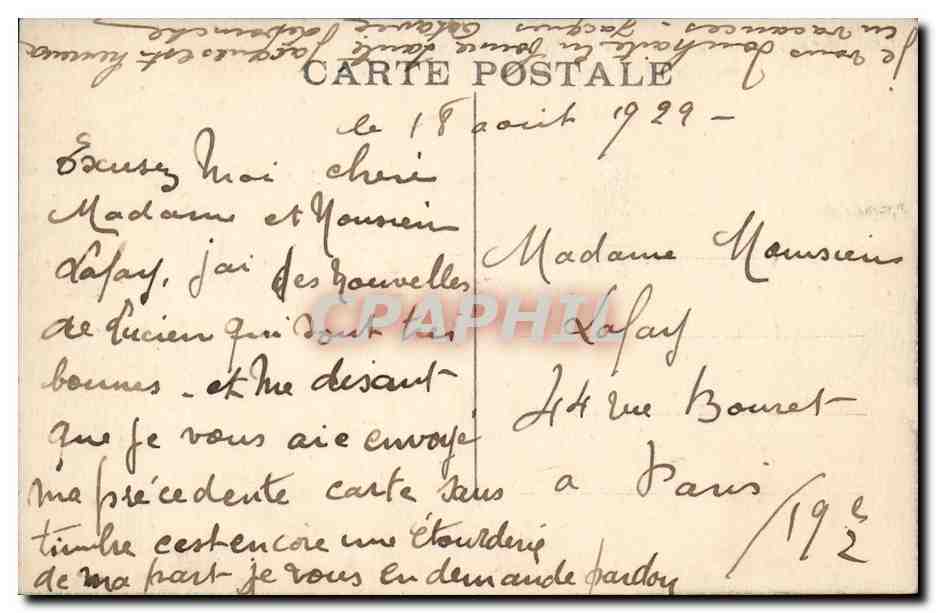 CARTE POSTALE
le 18 aout 1929 -
Excusez moi cheri
Madame et Monsieur
Lafay, j'ai des nouvelles
de Lucien qui sont très
bonnes - et me disant
que je vous aie envoyé
ma précédente carte sans
timbre c'est encore une étourderie
de ma part je vous en demande pardon
Je vous souhaite la bonne santé Jacques est heureux
en vacances. Jacques Octavie
Madame Monsieur
Lafay
44 rue Bouret
a Paris
/19e
2
CPAPHIL